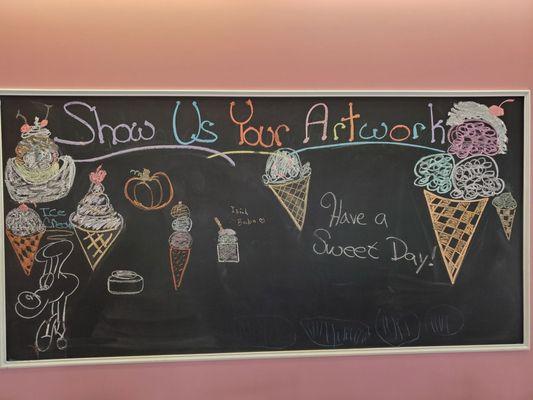 Show Us Your Artwork
Have a
Sweet Day!
Ice